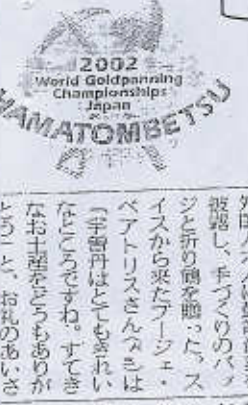 2002
World Goldpanning
Championships
Japan
HAMATOMBETSU
披露し、手づくりのバッ
ジと折り鶴を贈った。ス
イスから来たブージェ・
ベアトリスさん
は
「宇曽丹はとてもきれい
なところですね。すてき
なお土産をどうもありが
とう」と、お礼のあいさ